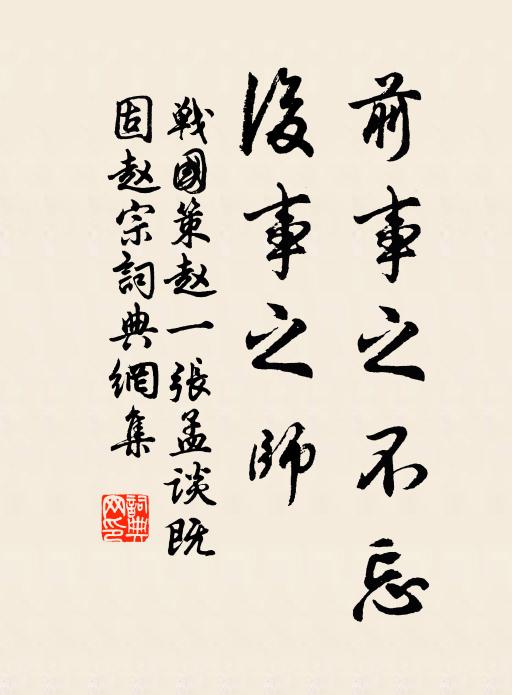 前事之不忘
後事之師
戰國策赵一張孟谈既
固赵宗詞典網集
詞典
网印